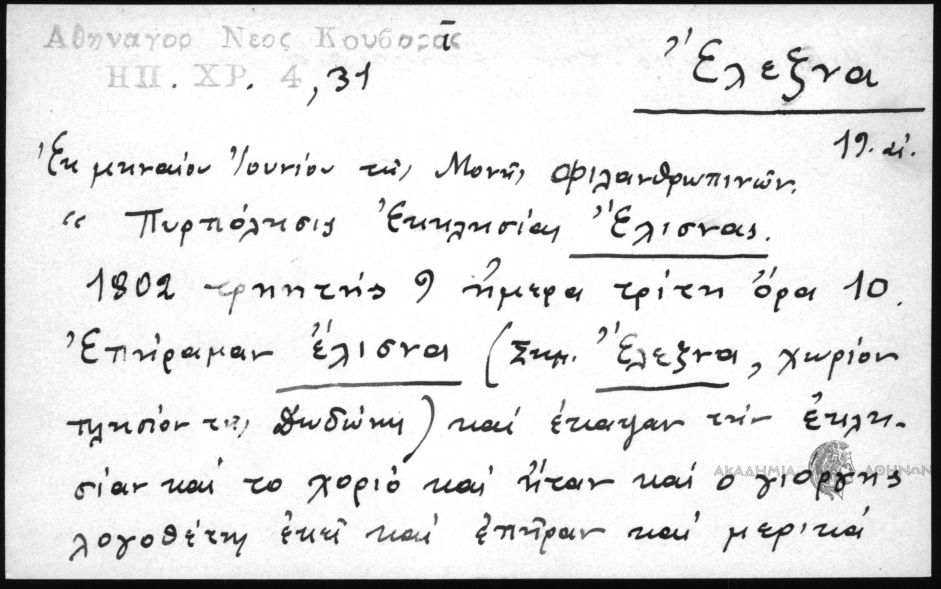 Αθηναγορ Νεος Κουβαρᾶς
ΗΠ. ΧΡ. 4, 31
Ἔλεξνα
19. αἰ.
Ἐκ μηναίου Ἰουνίου τῆς Μονῆς Φιλανθρωπινῶν.
“ Πυρπόλησις Ἐκκλησίας Ἔλισνας.
1802 τρηητής 9 ἥμερα τρίτη ὅρα 10.
Ἐπήραμαν ἔλισνα (Σημ. Ἔλεξνα, χωρίον
πλησίον τῆς Δωδώνης) καί ἔκαψαν τήν ἐκλη-
σίαν καί το χοριό καί ἤταν καί ο γιοργης
λογοθέτης ἐκεῖ καί ἐπῆραν καί μερικά
ΑΚΑΔΗΜΙΑ ΑΘΗΝΩΝ